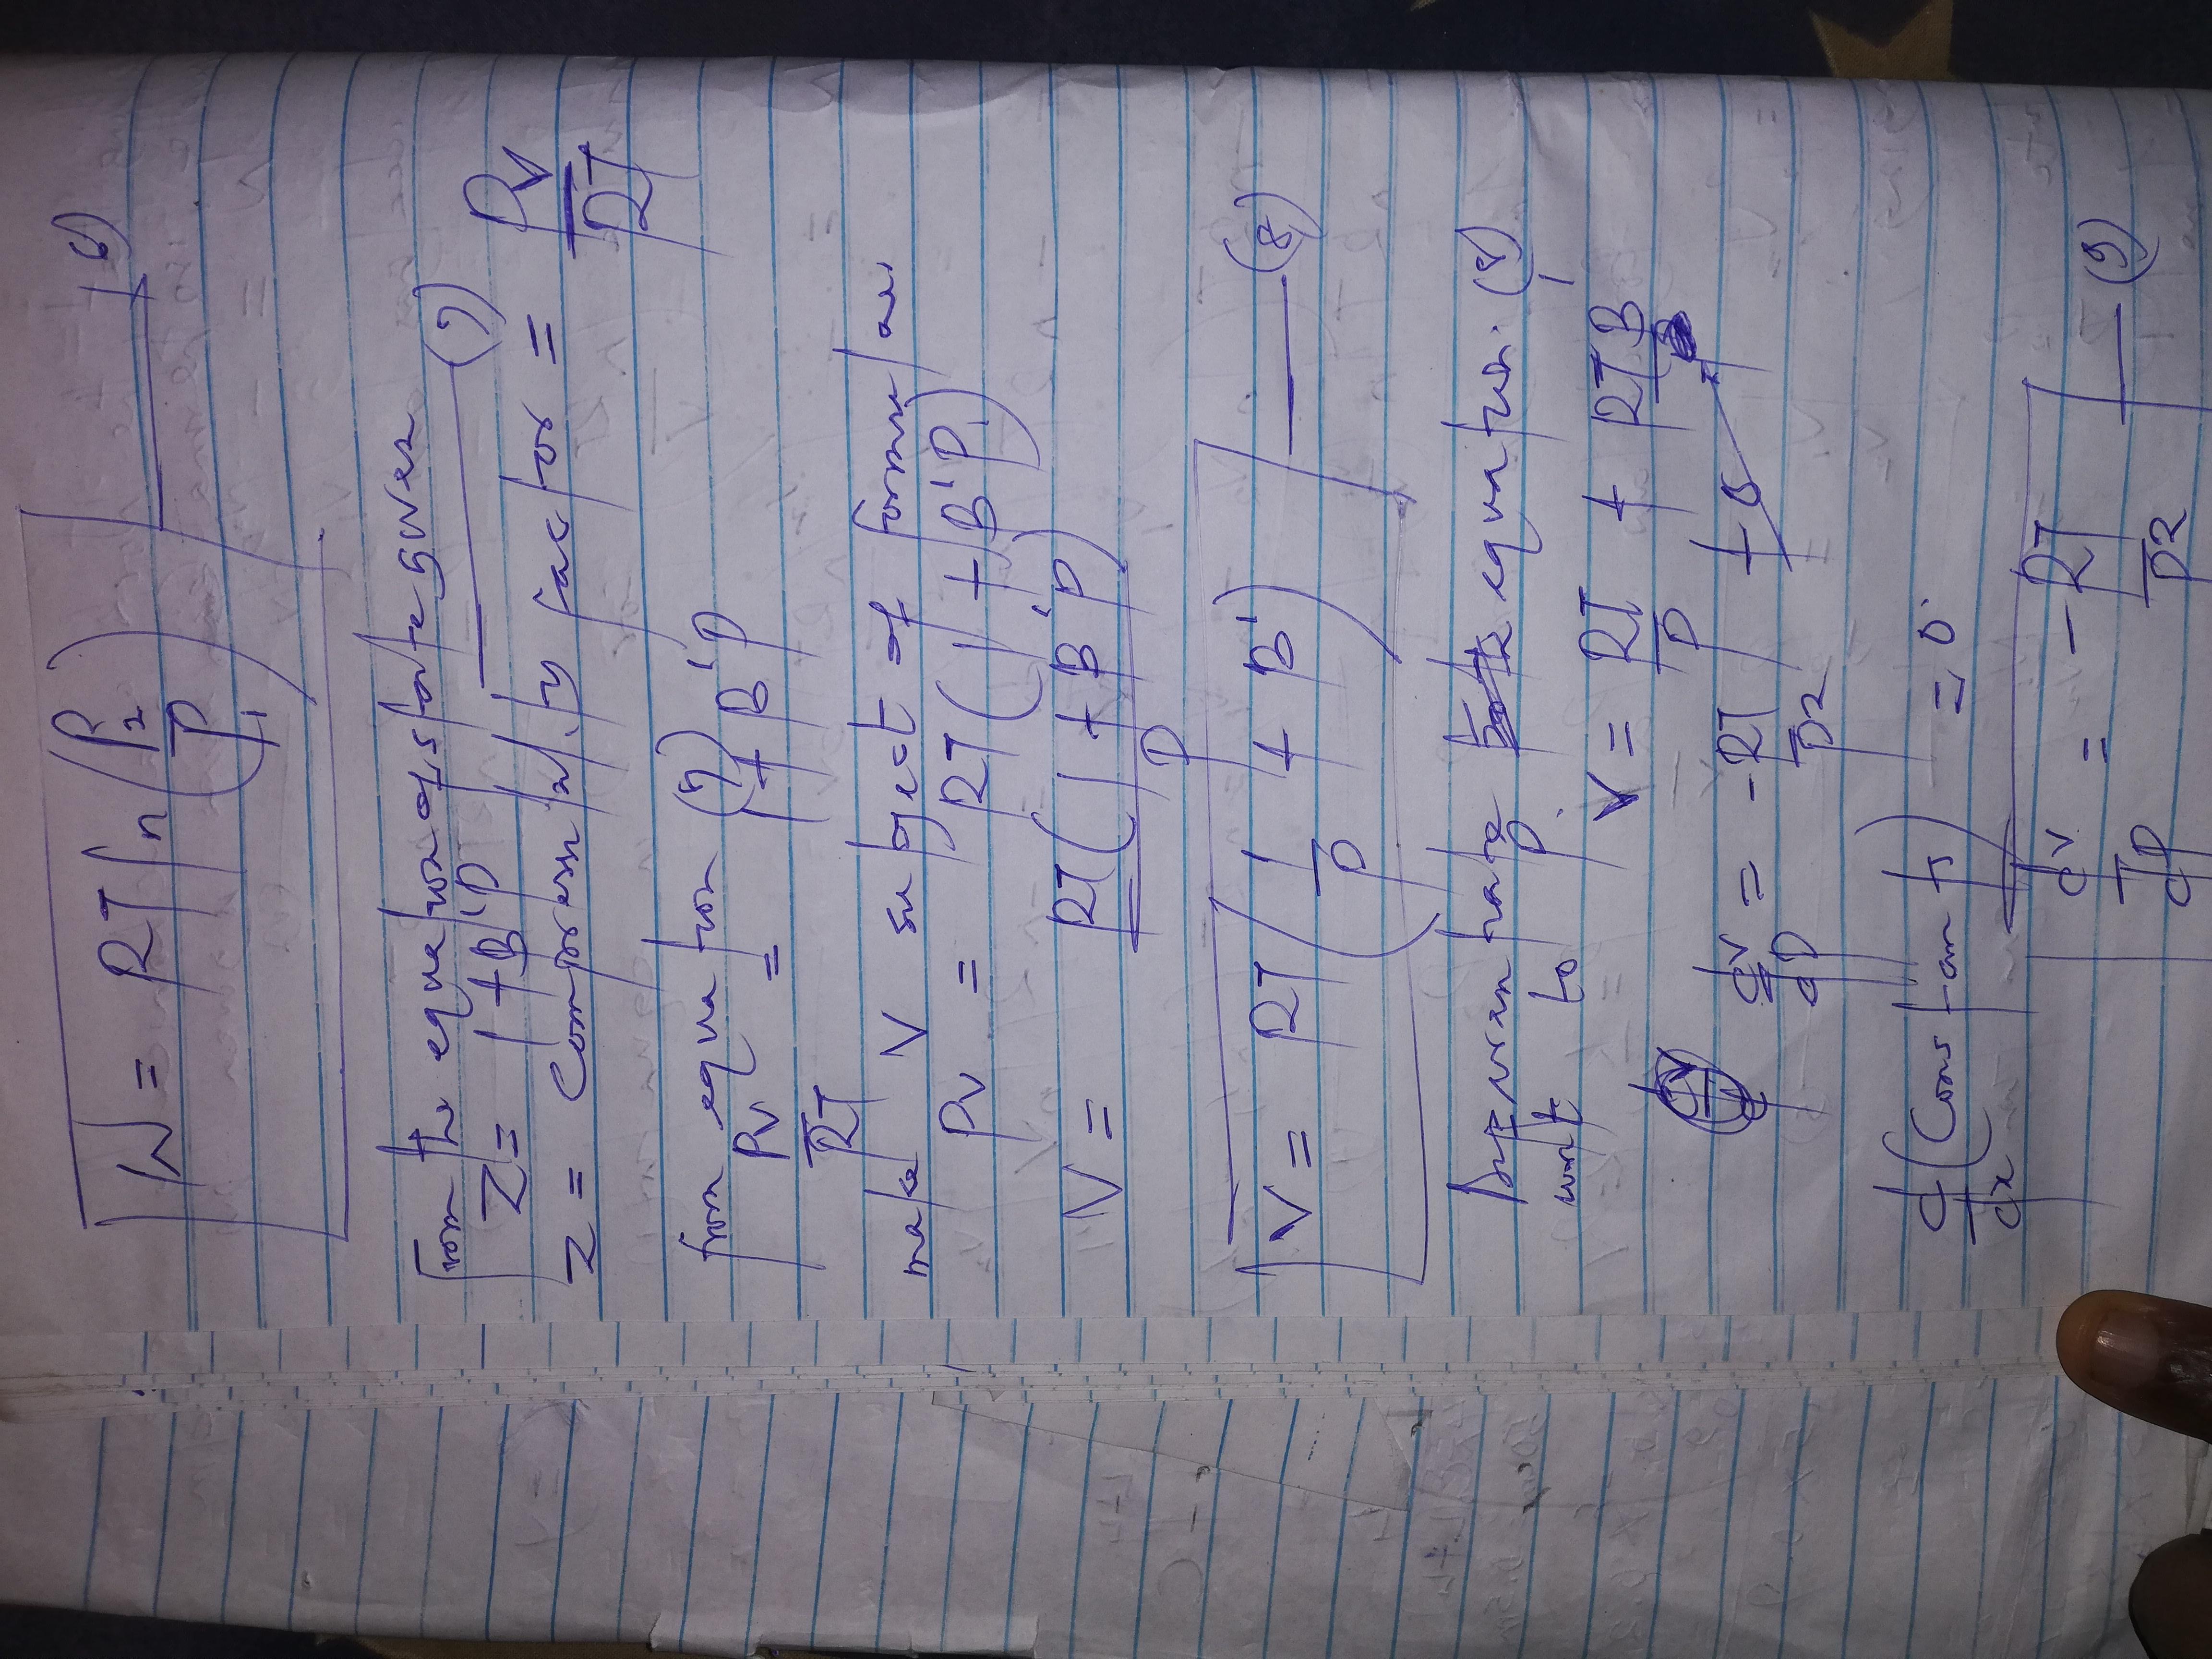 W = RT ln (P₂/P₁) — (6)
From the equation of state given
Z = 1 + B'P — (7)
Z = Compressibility factor = PV/RT
from equation (7)
PV/RT = 1 + B'P
make V subject of formular
PV = RT(1 + B'P)
V = RT(1 + B'P)/P
V = RT(1/P + B') — (8)
equation (8)
wrt to P.
V = RT/P + RTB'
dV/dP = -RT/P2 + 0
d/dx (Constant) = 0
dV/dP = -RT/P2 — (9)